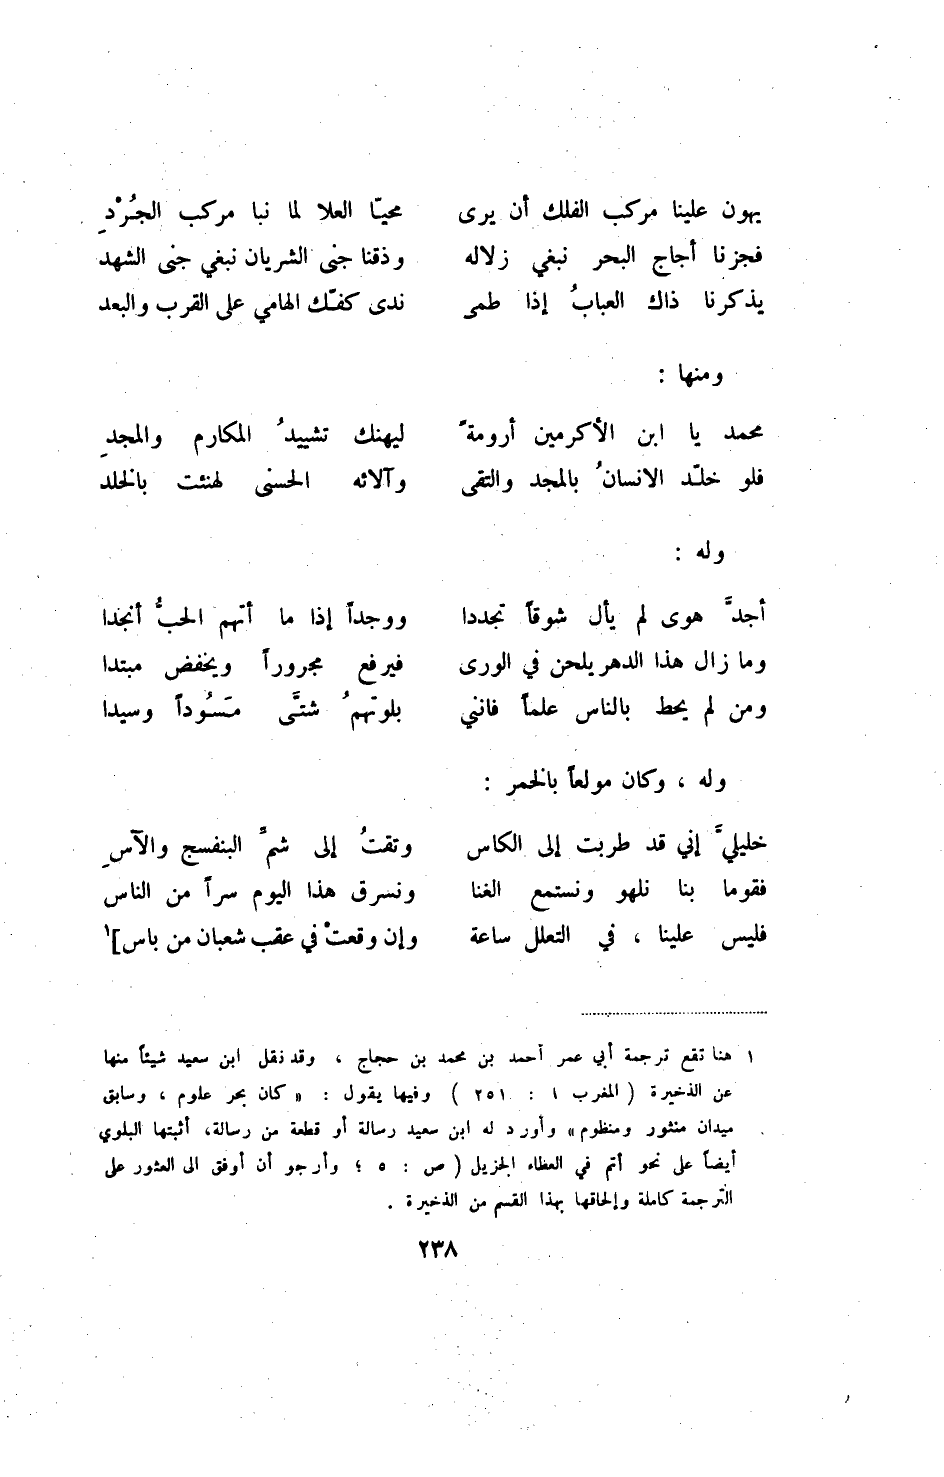 يهون علينا مركب الفلك أن يرى محيّا العلا لما نبا مركب الجُرْدِ
فجزنا أجاج البحر نبغي زلاله وذقنا جنى الشريان نبغي جنى الشهد
يذكرنا ذاك العبابُ إذا طمى ندى كفّك الهامي على القرب والبعد
ومنها :
محمد يا ابن الأكرمين أرومةً ليهنك تشييدُ المكارم والمجدِ
فلو خلّد الانسانُ بالمجد والتقى وآلائه الحسنى لهنئت بالخلد
وله :
أجدَّ هوى لم يأل شوقاً تجددا ووجداً إذا ما أتهم الحبُّ أنجدا
وما زال هذا الدهر يلحن في الورى فيرفع مجروراً ويخفض مبتدا
ومن لم يحط بالناس علماً فانني بلوتهمُ شتَّى مَسُوداً وسيدا
وله ، وكان مولعاً بالخمر :
خليليَّ إني قد طربت إلى الكاس وتقتُ إلى شمَّ البنفسج والآسِ
فقوما بنا نلهو ونستمع الغنا ونسرق هذا اليوم سراً من الناس
فليس علينا ، في التعلل ساعة وإن وقعتْ في عقب شعبان من باس]١
١ هنا تقع ترجمة أبي عمر أحمد بن محمد بن حجاج ، وقد نقل ابن سعيد شيئاً منها
عن الذخيرة ( المغرب ١ : ٢٥١ ) وفيها يقول : « كان بحر علوم ، وسابق
ميدان منثور ومنظوم» وأورد له ابن سعيد رسالة أو قطعة من رسالة، أثبتها البلوي
أيضاً على نحو أتم في العطاء الجزيل ( ص : ٥ ؛ وأرجو أن أوفق الى العثور على
الترجمة كاملة وإلحاقها بهذا القسم من الذخيرة .
٢٣٨